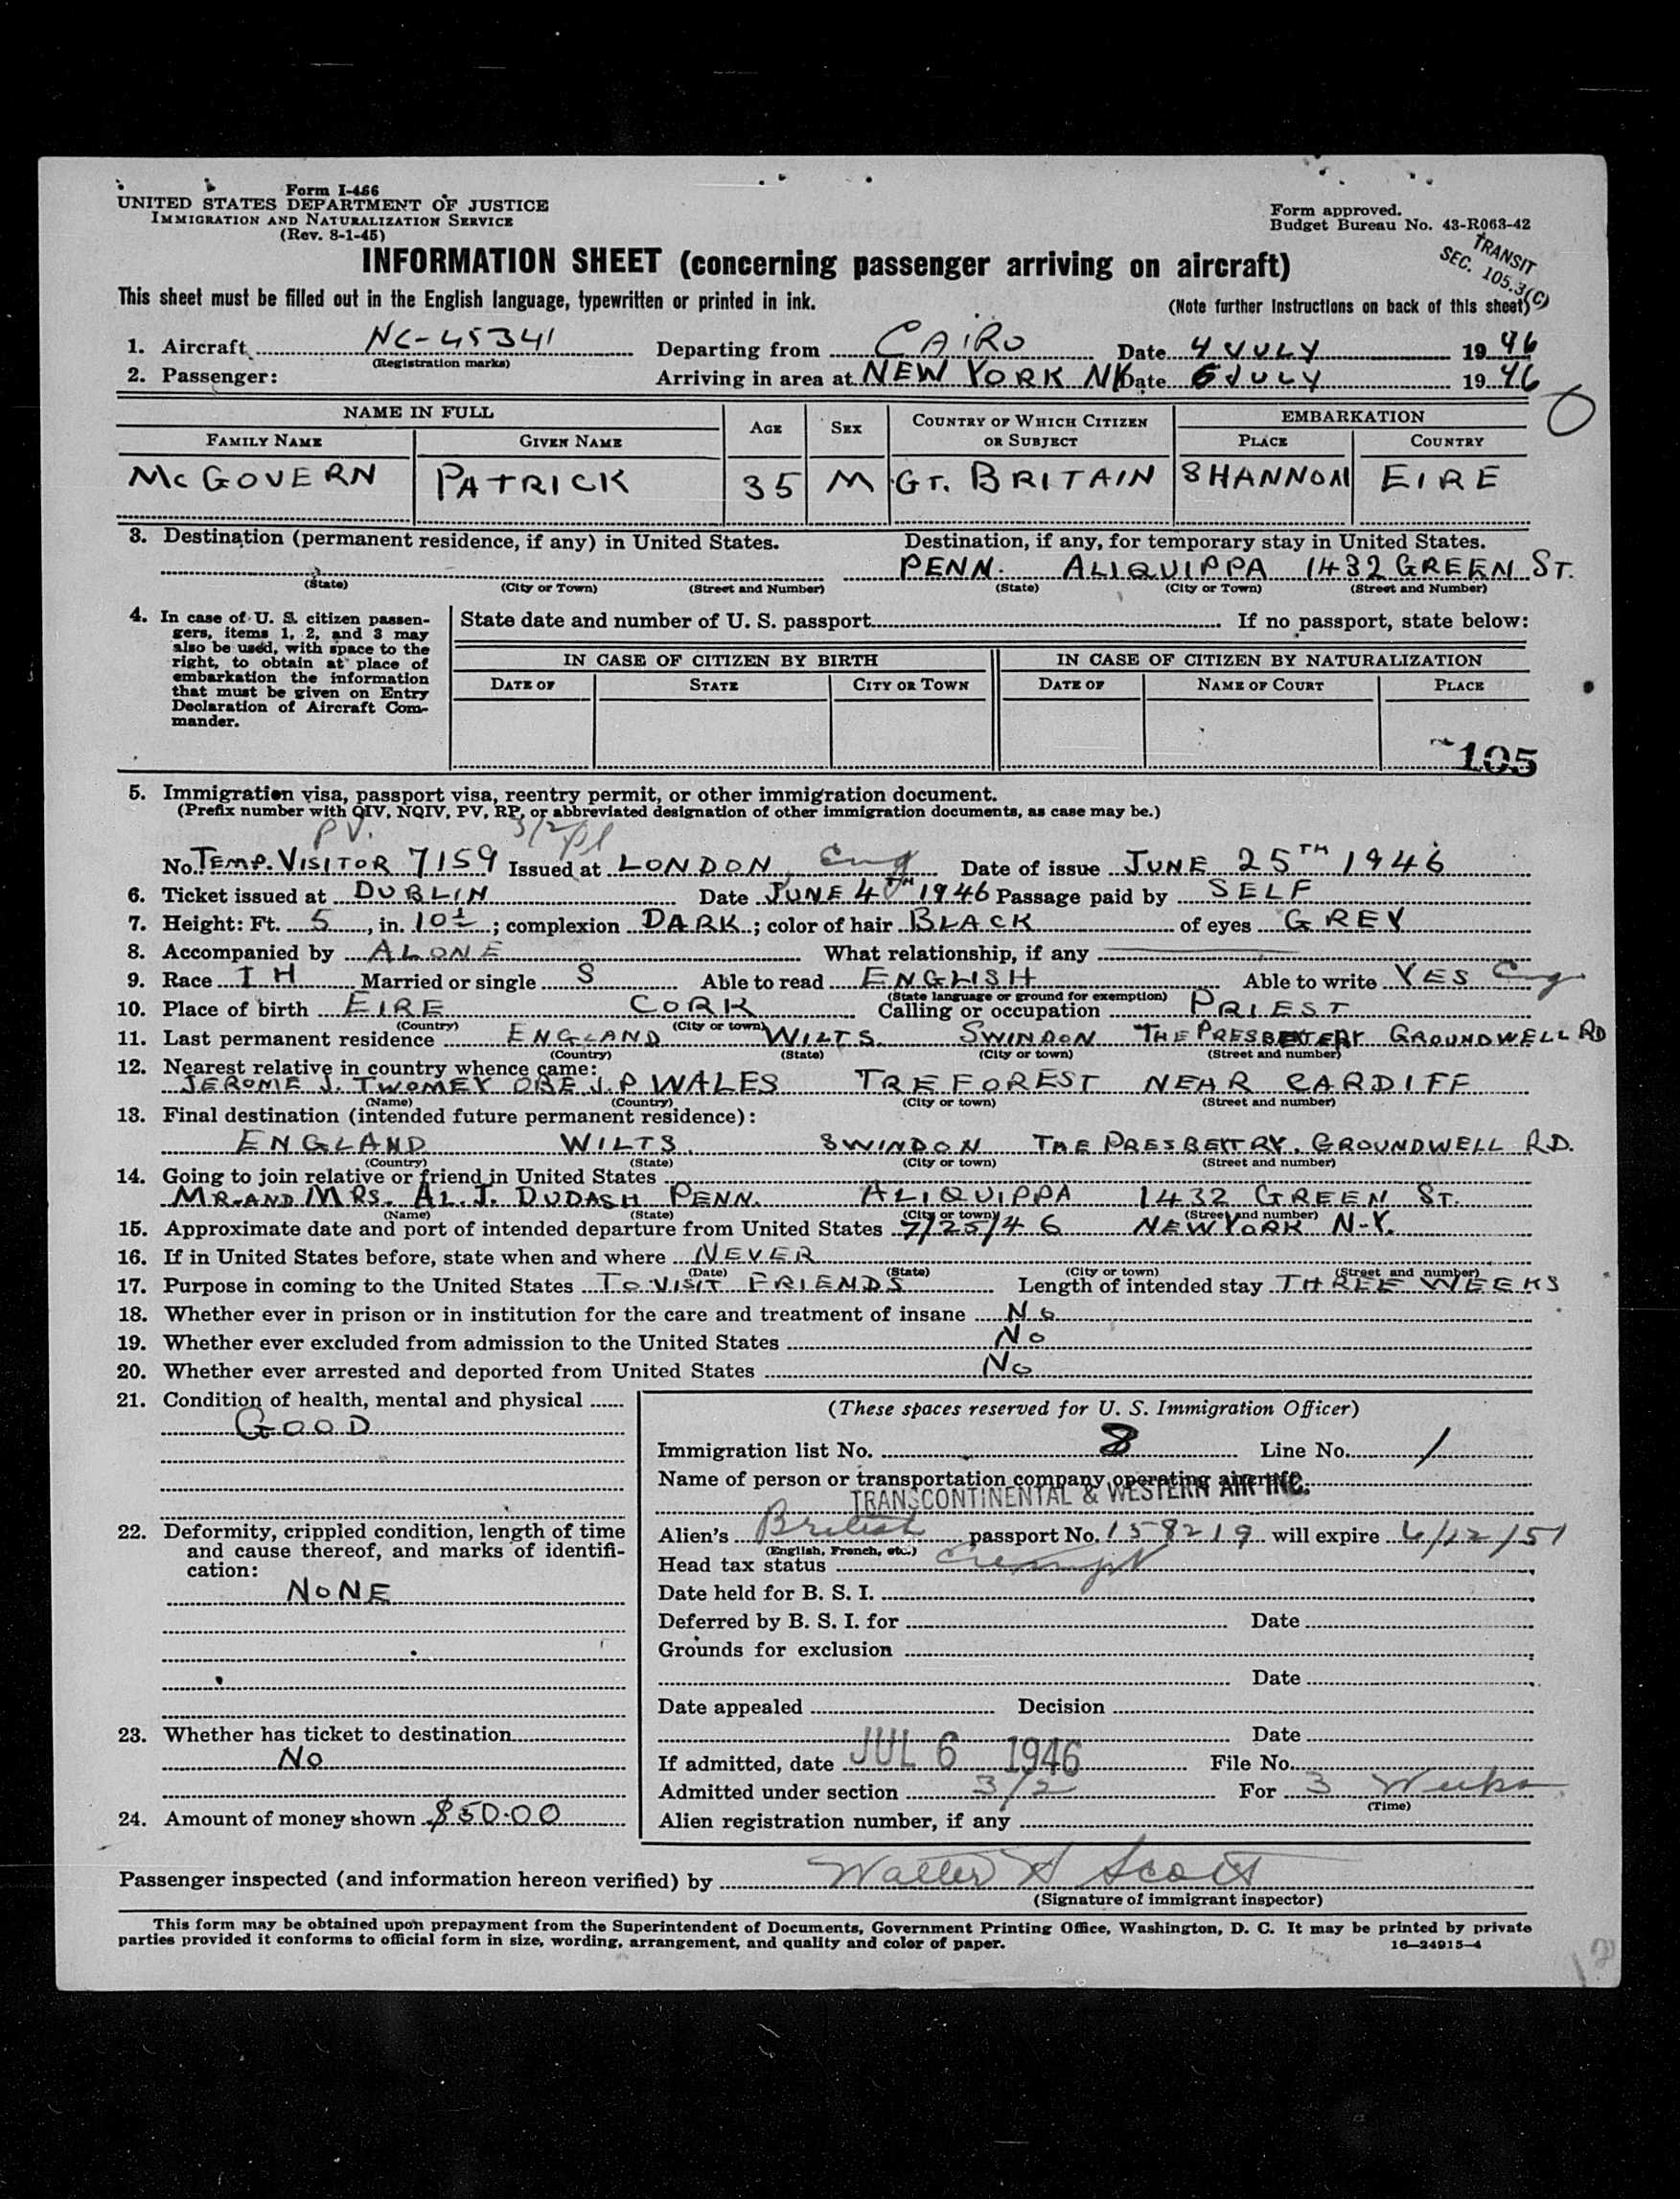 Form I-466
UNITED STATES DEPARTMENT OF JUSTICE
IMMIGRATION AND NATURALIZATION SERVICE
(Rev. 8-1-45)
Form approved.
Budget Bureau No. 43-R063-42
TRANSIT
SEC. 105.3(C)
INFORMATION SHEET (concerning passenger arriving on aircraft)
This sheet must be filled out in the English language, typewritten or printed in ink. (Note further instructions on back of this sheet)
1. Aircraft NC-45341 Departing from CAIRO Date 4 JULY 1946
(Registration marks)
2. Passenger: Arriving in area at NEW YORK NY Date 6 JULY 1946
NAME IN FULL AGE SEX COUNTRY OF WHICH CITIZEN OR SUBJECT EMBARKATION
FAMILY NAME GIVEN NAME PLACE COUNTRY
McGOVERN PATRICK 35 M GT. BRITAIN SHANNON EIRE
3. Destination (permanent residence, if any) in United States. Destination, if any, for temporary stay in United States.
PENN. ALIQUIPPA 1432 GREEN ST.
(State) (City or Town) (Street and Number) (State) (City or Town) (Street and Number)
4. In case of U. S. citizen passen-
gers, items 1, 2, and 3 may
also be used, with space to the
right, to obtain at place of
embarkation the information
that must be given on Entry
Declaration of Aircraft Com-
mander.
State date and number of U. S. passport If no passport, state below:
IN CASE OF CITIZEN BY BIRTH IN CASE OF CITIZEN BY NATURALIZATION
DATE OF STATE CITY OR TOWN DATE OF NAME OF COURT PLACE
105
5. Immigration visa, passport visa, reentry permit, or other immigration document.
(Prefix number with QIV, NQIV, PV, RP, or abbreviated designation of other immigration documents, as case may be.)
PV. 3/2
No. TEMP. VISITOR 7159 Issued at LONDON, Eng Date of issue JUNE 25TH 1946
6. Ticket issued at DUBLIN Date JUNE 4TH 1946 Passage paid by SELF
7. Height: Ft. 5, in. 10½; complexion DARK; color of hair BLACK of eyes GREY
8. Accompanied by ALONE What relationship, if any
9. Race IH Married or single S Able to read ENGLISH Able to write YES Eng
(State language or ground for exemption)
10. Place of birth EIRE CORK Calling or occupation PRIEST
(Country) (City or town)
11. Last permanent residence ENGLAND WILTS. SWINDON THE PRESBETERY GROUNDWELL RD
(Country) (State) (City or town) (Street and number)
12. Nearest relative in country whence came:
JEROME J. TWOMEY OBE J.P WALES TREFOREST NEAR CARDIFF
(Name) (Country) (City or town) (Street and number)
13. Final destination (intended future permanent residence):
ENGLAND WILTS. SWINDON THE PRESBETRY. GROUNDWELL RD.
(Country) (State) (City or town) (Street and number)
14. Going to join relative or friend in United States
MR. AND MRS. AL. J. DUDASH PENN. ALIQUIPPA 1432 GREEN ST.
(Name) (State) (City or town) (Street and number)
15. Approximate date and port of intended departure from United States 7/25/46 NEW YORK N.Y.
16. If in United States before, state when and where NEVER
(Date) (State) (City or town) (Street and number)
17. Purpose in coming to the United States TO VISIT FRIENDS Length of intended stay THREE WEEKS
18. Whether ever in prison or in institution for the care and treatment of insane No
19. Whether ever excluded from admission to the United States No
20. Whether ever arrested and deported from United States No
21. Condition of health, mental and physical
GOOD
22. Deformity, crippled condition, length of time
and cause thereof, and marks of identifi-
cation:
NONE
23. Whether has ticket to destination
No
24. Amount of money shown $50.00
(These spaces reserved for U. S. Immigration Officer)
Immigration list No. 8 Line No. 1
Name of person or transportation company operating aircraft
TRANSCONTINENTAL & WESTERN AIR INC.
Alien's British passport No. 158219 will expire 6/12/51
(English, French, etc.)
Head tax status Exempt
Date held for B. S. I.
Deferred by B. S. I. for Date
Grounds for exclusion
Date
Date appealed Decision
Date
If admitted, date JUL 6 1946 File No.
Admitted under section 3/2 For 3 Weeks
(Time)
Alien registration number, if any
Passenger inspected (and information hereon verified) by Walter H Scott
(Signature of immigrant inspector)
This form may be obtained upon prepayment from the Superintendent of Documents, Government Printing Office, Washington, D. C. It may be printed by private
parties provided it conforms to official form in size, wording, arrangement, and quality and color of paper. 16—24915-4